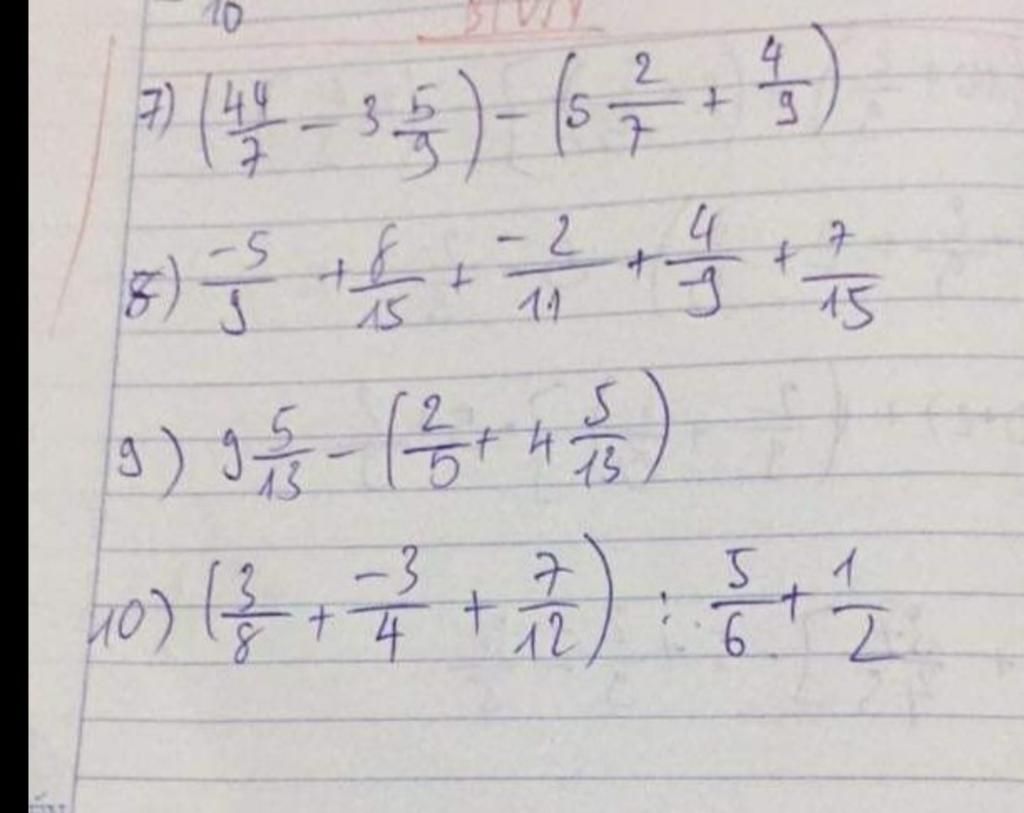 10
7) (44/7 - 3 5/9) - (5 2/7 + 4/9)
8) -5/9 + 8/15 + -2/11 + 4/9 + 7/15
9) 9 5/13 - (2/5 + 4 5/13)
10) (3/8 + -3/4 + 7/12) : 5/6 + 1/2